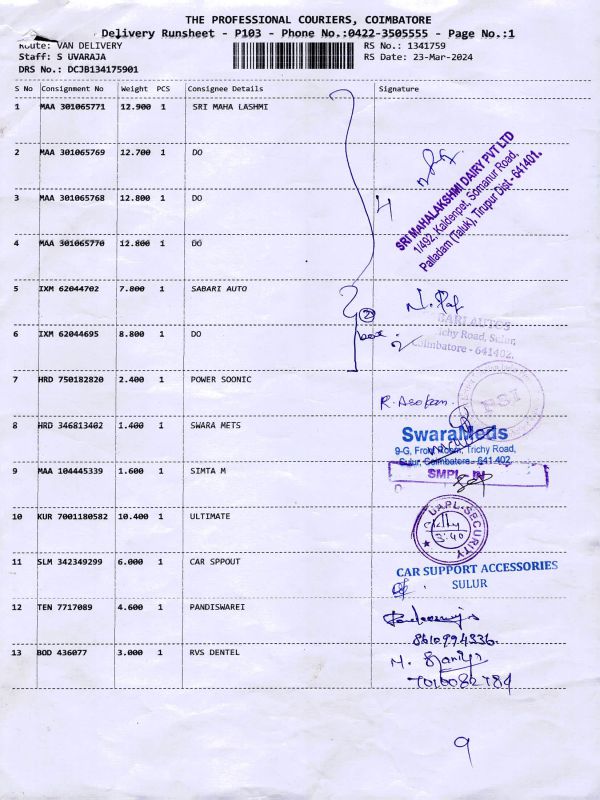 THE PROFESSIONAL COURIERS, COIMBATORE
Delivery Runsheet - P103 - Phone No.:0422-3505555 - Page No.:1
Route: VAN DELIVERY
RS No.: 1341759
Staff: S UVARAJA
RS Date: 23-Mar-2024
DRS No.: DCJB134175901
S No Consignment No Weight PCS Consignee Details Signature
1 MAA 301065771 12.900 1 SRI MAHA LASHMI
2 MAA 301065769 12.700 1 DO
3 MAA 301065768 12.800 1 DO
4
SRI MAHALAKSHMI DAIRY PVT LTD
1/492, Kaldenpet, Somanur Road,
Palladam (Taluk), Tirupur Dist - 641401.
4 MAA 301065770 12.800 1 DO
5 IXM 62044702 7.800 1 SABARI AUTO
2
box.
BARI AUTOS
ichy Road, Sulur,
Coimbatore - 641402.
6 IXM 62044695 8.800 1 DO
7 HRD 750182820 2.400 1 POWER SOONIC
R. Asokan.
PSI
8 HRD 346813402 1.400 1 SWARA METS
SwaraMeds
9-G, Front Room, Trichy Road,
Sulur, Coimbatore - 641 402.
9 MAA 104445339 1.600 1 SIMTA M
SMPL - IN
10 KUR 7001180582 10.400 1 ULTIMATE
UAPL-SECURITY
3:40
11 SLM 342349299 6.000 1 CAR SPPOUT
CAR SUPPORT ACCESSORIES
SULUR
12 TEN 7717089 4.600 1 PANDISWAREI
8610994336.
13 BOD 436077 3.000 1 RVS DENTEL
7010082784
9